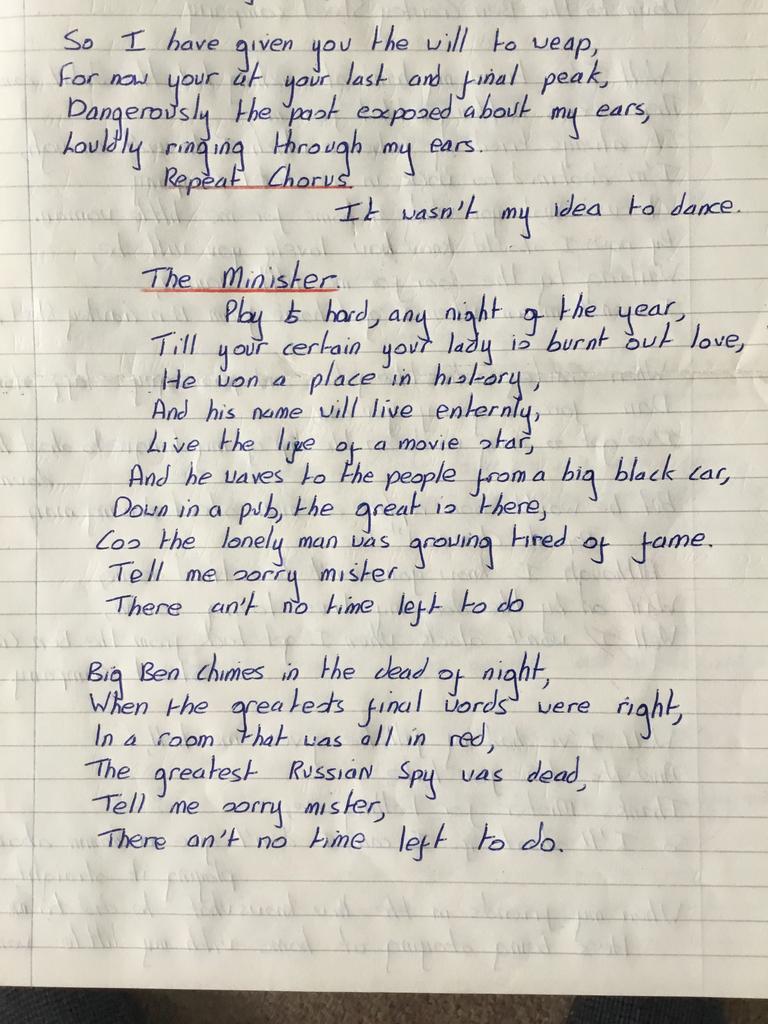 So I have given you the will to weap,
For now your at your last and final peak,
Dangerously the past exposed about my ears,
Louldly ringing through my ears.
Repeat Chorus
It wasn't my idea to dance.
The Minister.
Play to hard, any night of the year,
Till your certain your lady is burnt out love,
He won a place in history,
And his name will live enternly,
Live the life of a movie star,
And he waves to the people from a big black car,
Down in a pub, the great is there,
Cos the lonely man was growing tired of fame.
Tell me sorry mister
There an't no time left to do
Big Ben chimes in the dead of night,
When the greatests final words were right,
In a room that was all in red,
The greatest Russian Spy was dead,
Tell me sorry mister,
There an't no time left to do.